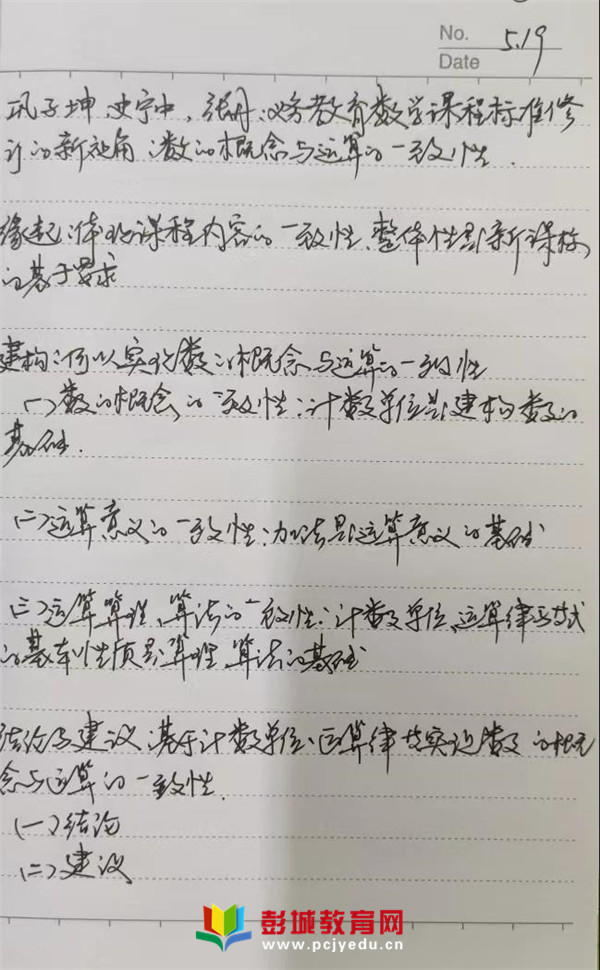 No. 5.19
Date
巩子坤、史宁中、张丹:义务教育数学课程标准修
订的新视角:数的概念与运算的一致性.
缘起:体现课程内容的一致性、整体性是新课标
的基于要求
建构:何以实现数的概念与运算的一致性
(一)数的概念的一致性:计数单位是建构数的
基础.
(二)运算意义的一致性:加法是运算意义的基础
(三)运算算理、算法的一致性:计数单位、运算律与等式
的基本性质是算理、算法的基础
结论及建议:基于计数单位、运算律等实现数的概
念与运算的一致性.
(一)结论
(二)建议
彭城教育网
www.pcjyedu.cn